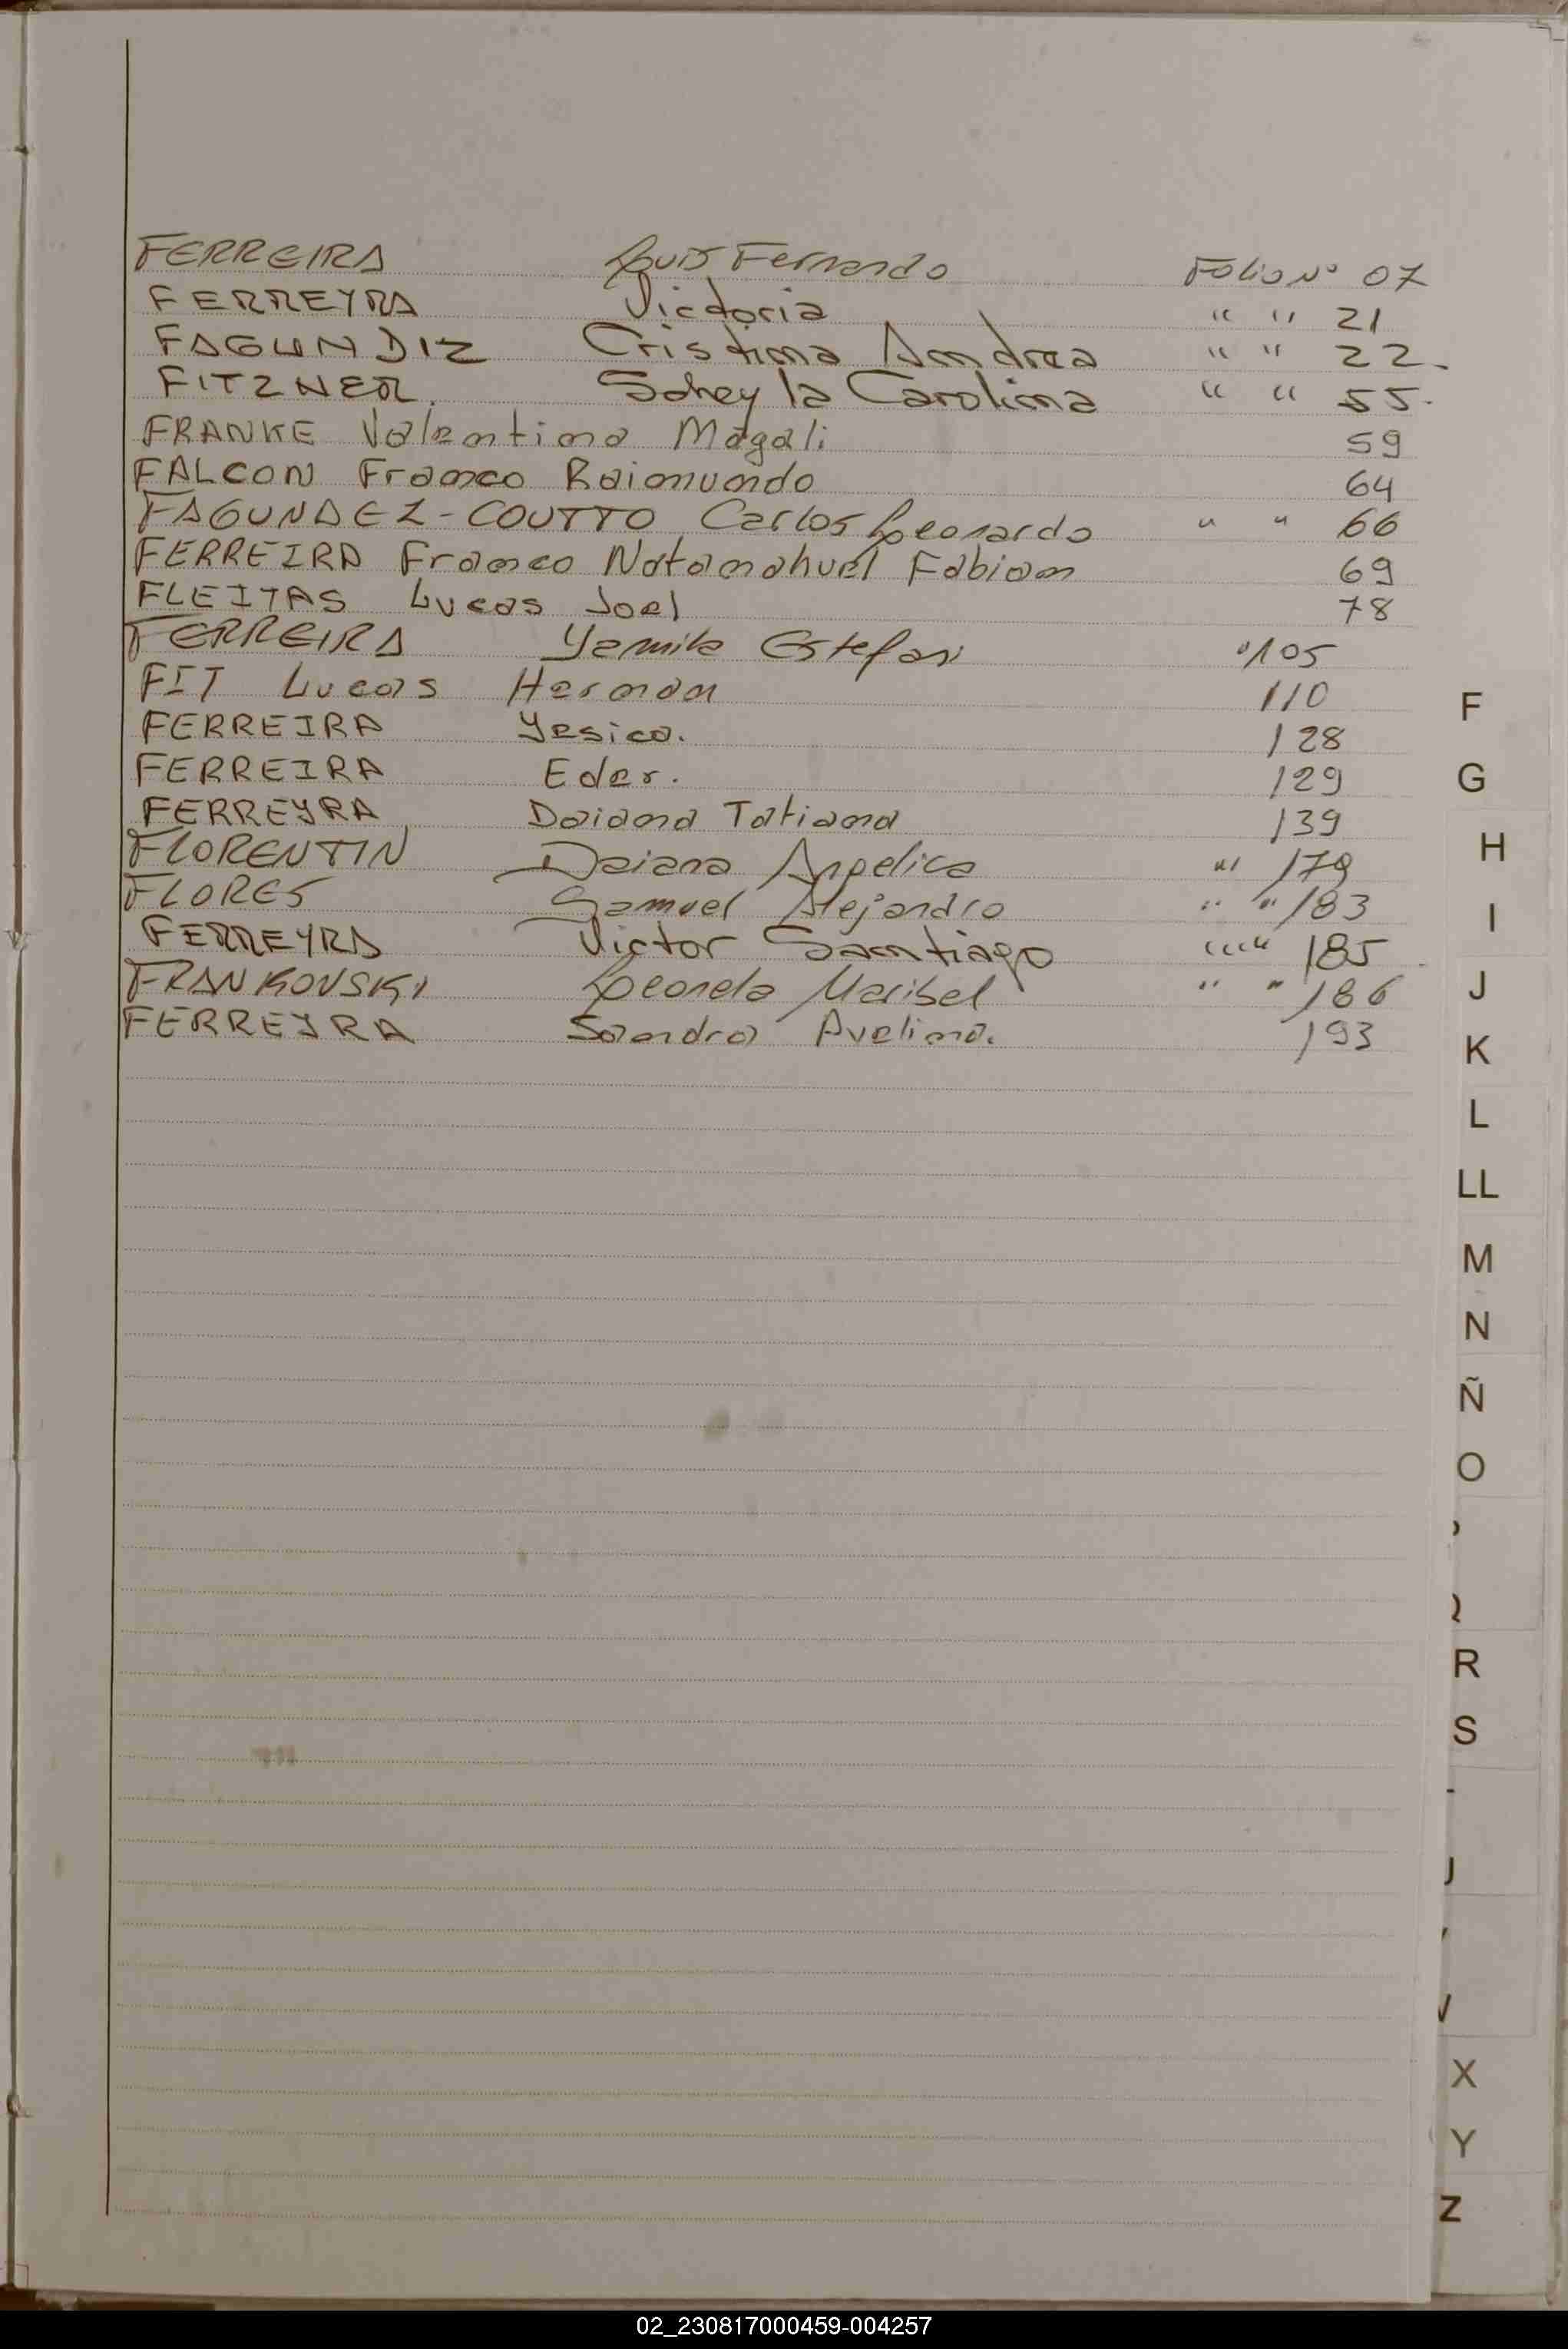 FERREIRA Luis Fernando Folio Nº 07
FERREYRA Victoria " " 21
FAGUNDIZ Cristina Andrea " " 22.
FITZNER. Sdheyla Carolina " " 55.
FRANKE Valentina Magali 59
FALCON Franco Raimundo 64
FAGUNDEZ-COUTTO Carlos Leonardo " " 66
FERREIRA Franco Natanahuel Fabian 69
FLEITAS Lucas Joel 78
FERREIRA Yamila Estefani " 105
FIT Lucas Hernan 110
FERREIRA Yesica. 128
FERREIRA Eder. 129
FERREYRA Daiana Tatiana 139
FLORENTIN Daiana Angelica " 179
FLORES Samuel Alejandro " " 183
FERREYRA Victor Santiago " " 185.
FRANKOVSKI Leonela Maribel " " 186
FERREYRA Sandra Avelina. 193
F
G
H
I
J
K
L
LL
M
N
Ñ
O
R
S
X
Y
Z
02_230817000459-004257